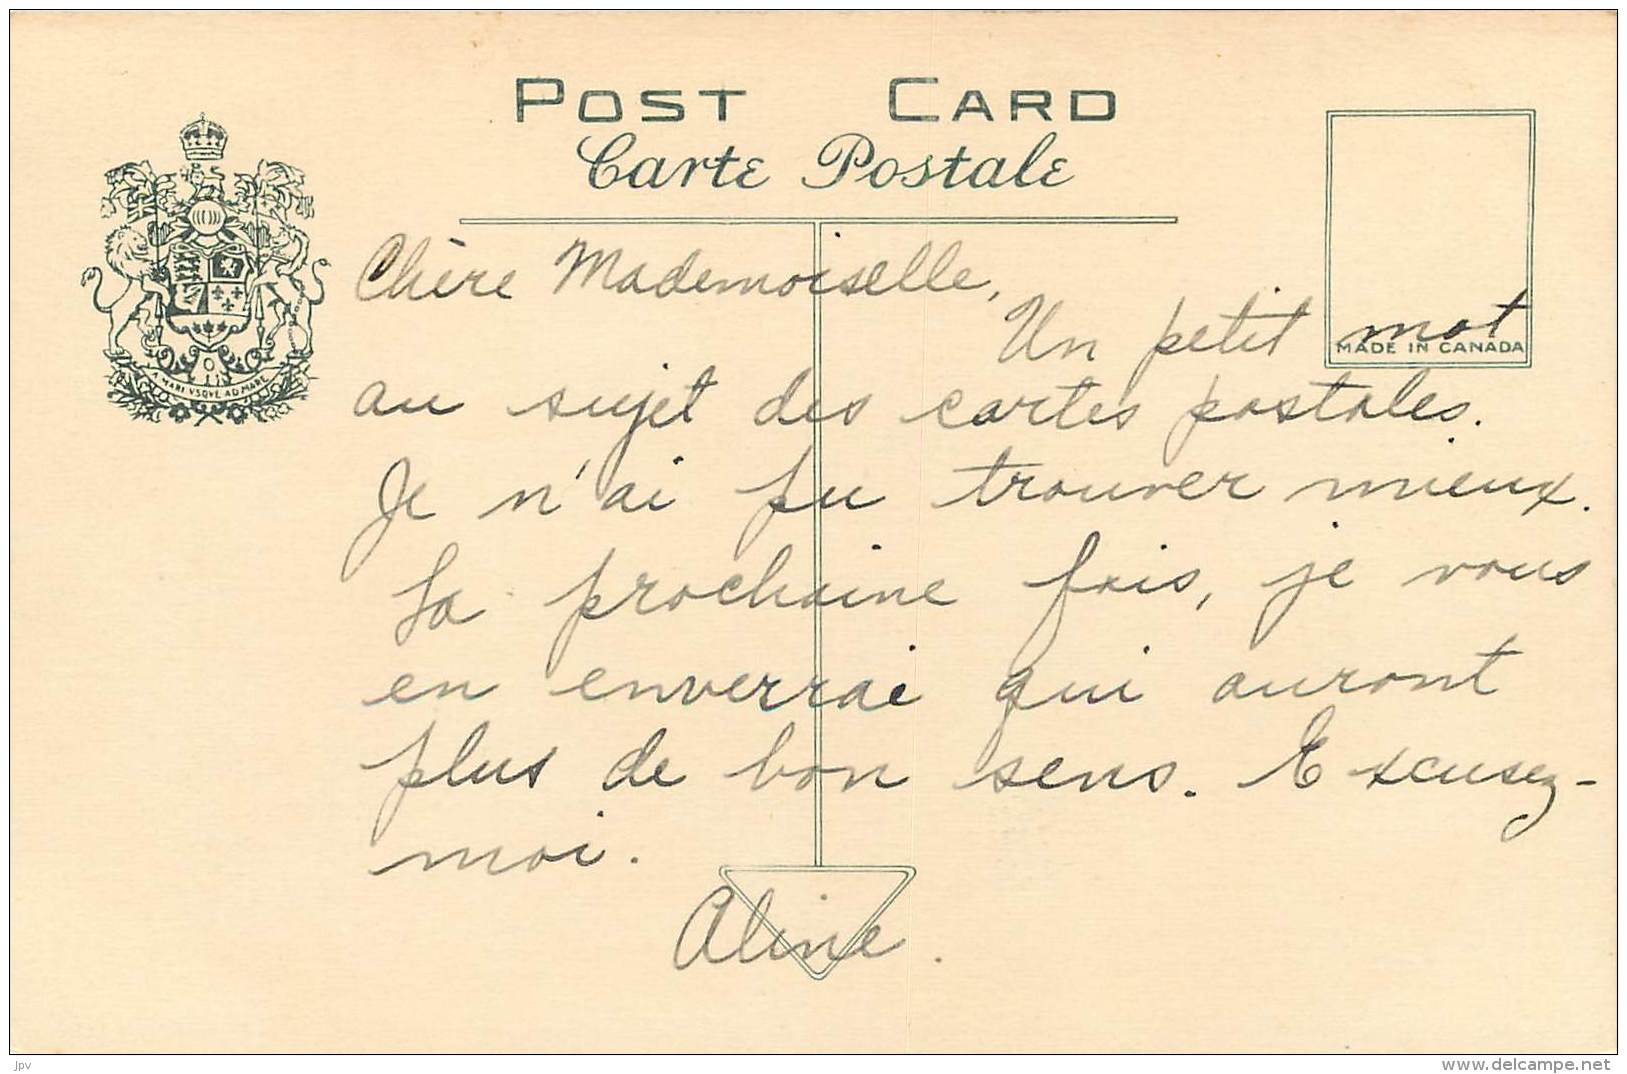 POST CARD
Carte Postale
A MARI VSQVE AD MARE
Chère Mademoiselle,
Un petit mot
MADE IN CANADA
au sujet des cartes postales.
Je n'ai pu trouver mieux.
La prochaine fois, je vous
en enverrai qui auront
plus de bon sens. Excusez-
moi.
Aline.
jpv
www.delcampe.net